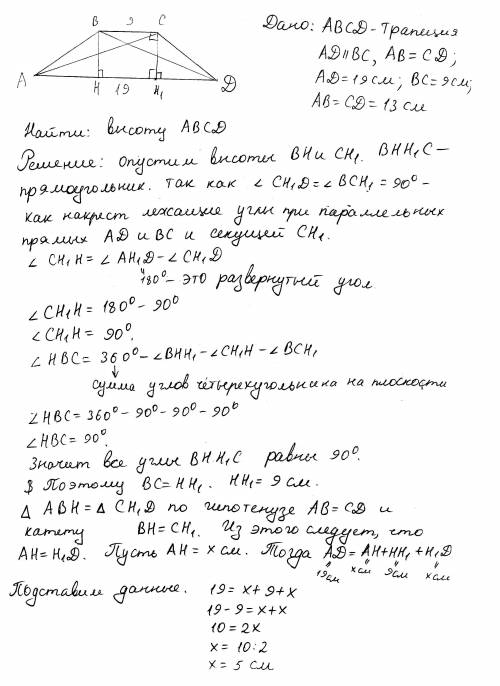 B 9 C
A H 19 H₁ D
Дано: ABCD - трапеция
AD∥BC, AB = CD;
AD = 19 см; BC = 9 см;
AB = CD = 13 см
Найти: высоту ABCD
Решение: опустим высоты BH и CH₁. BHH₁C —
прямоугольник. Так как ∠CH₁D = ∠BCH₁ = 90° -
как накрест лежащие углы при параллельных
прямых AD и BC и секущей CH₁.
∠CH₁H = ∠AH₁D - ∠CH₁D
180° - это развернутый угол
∠CH₁H = 180° - 90°
∠CH₁H = 90°.
∠HBC = 360° - ∠BHH₁ - ∠CH₁H - ∠BCH₁
сумма углов четырехугольника на плоскости
∠HBC = 360° - 90° - 90° - 90°
∠HBC = 90°.
Значит все углы BHH₁C равны 90°.
Поэтому BC = HH₁. HH₁ = 9 см.
Δ ABH = Δ CH₁D по гипотенузе AB = CD и
катету BH = CH₁. Из этого следует, что
AH = H₁D. Пусть AH = x см. Тогда AD = AH + HH₁ + H₁D
19 см x см 9 см x см
Подставим данные. 19 = x + 9 + x
19 - 9 = x + x
10 = 2x
x = 10 : 2
x = 5 см